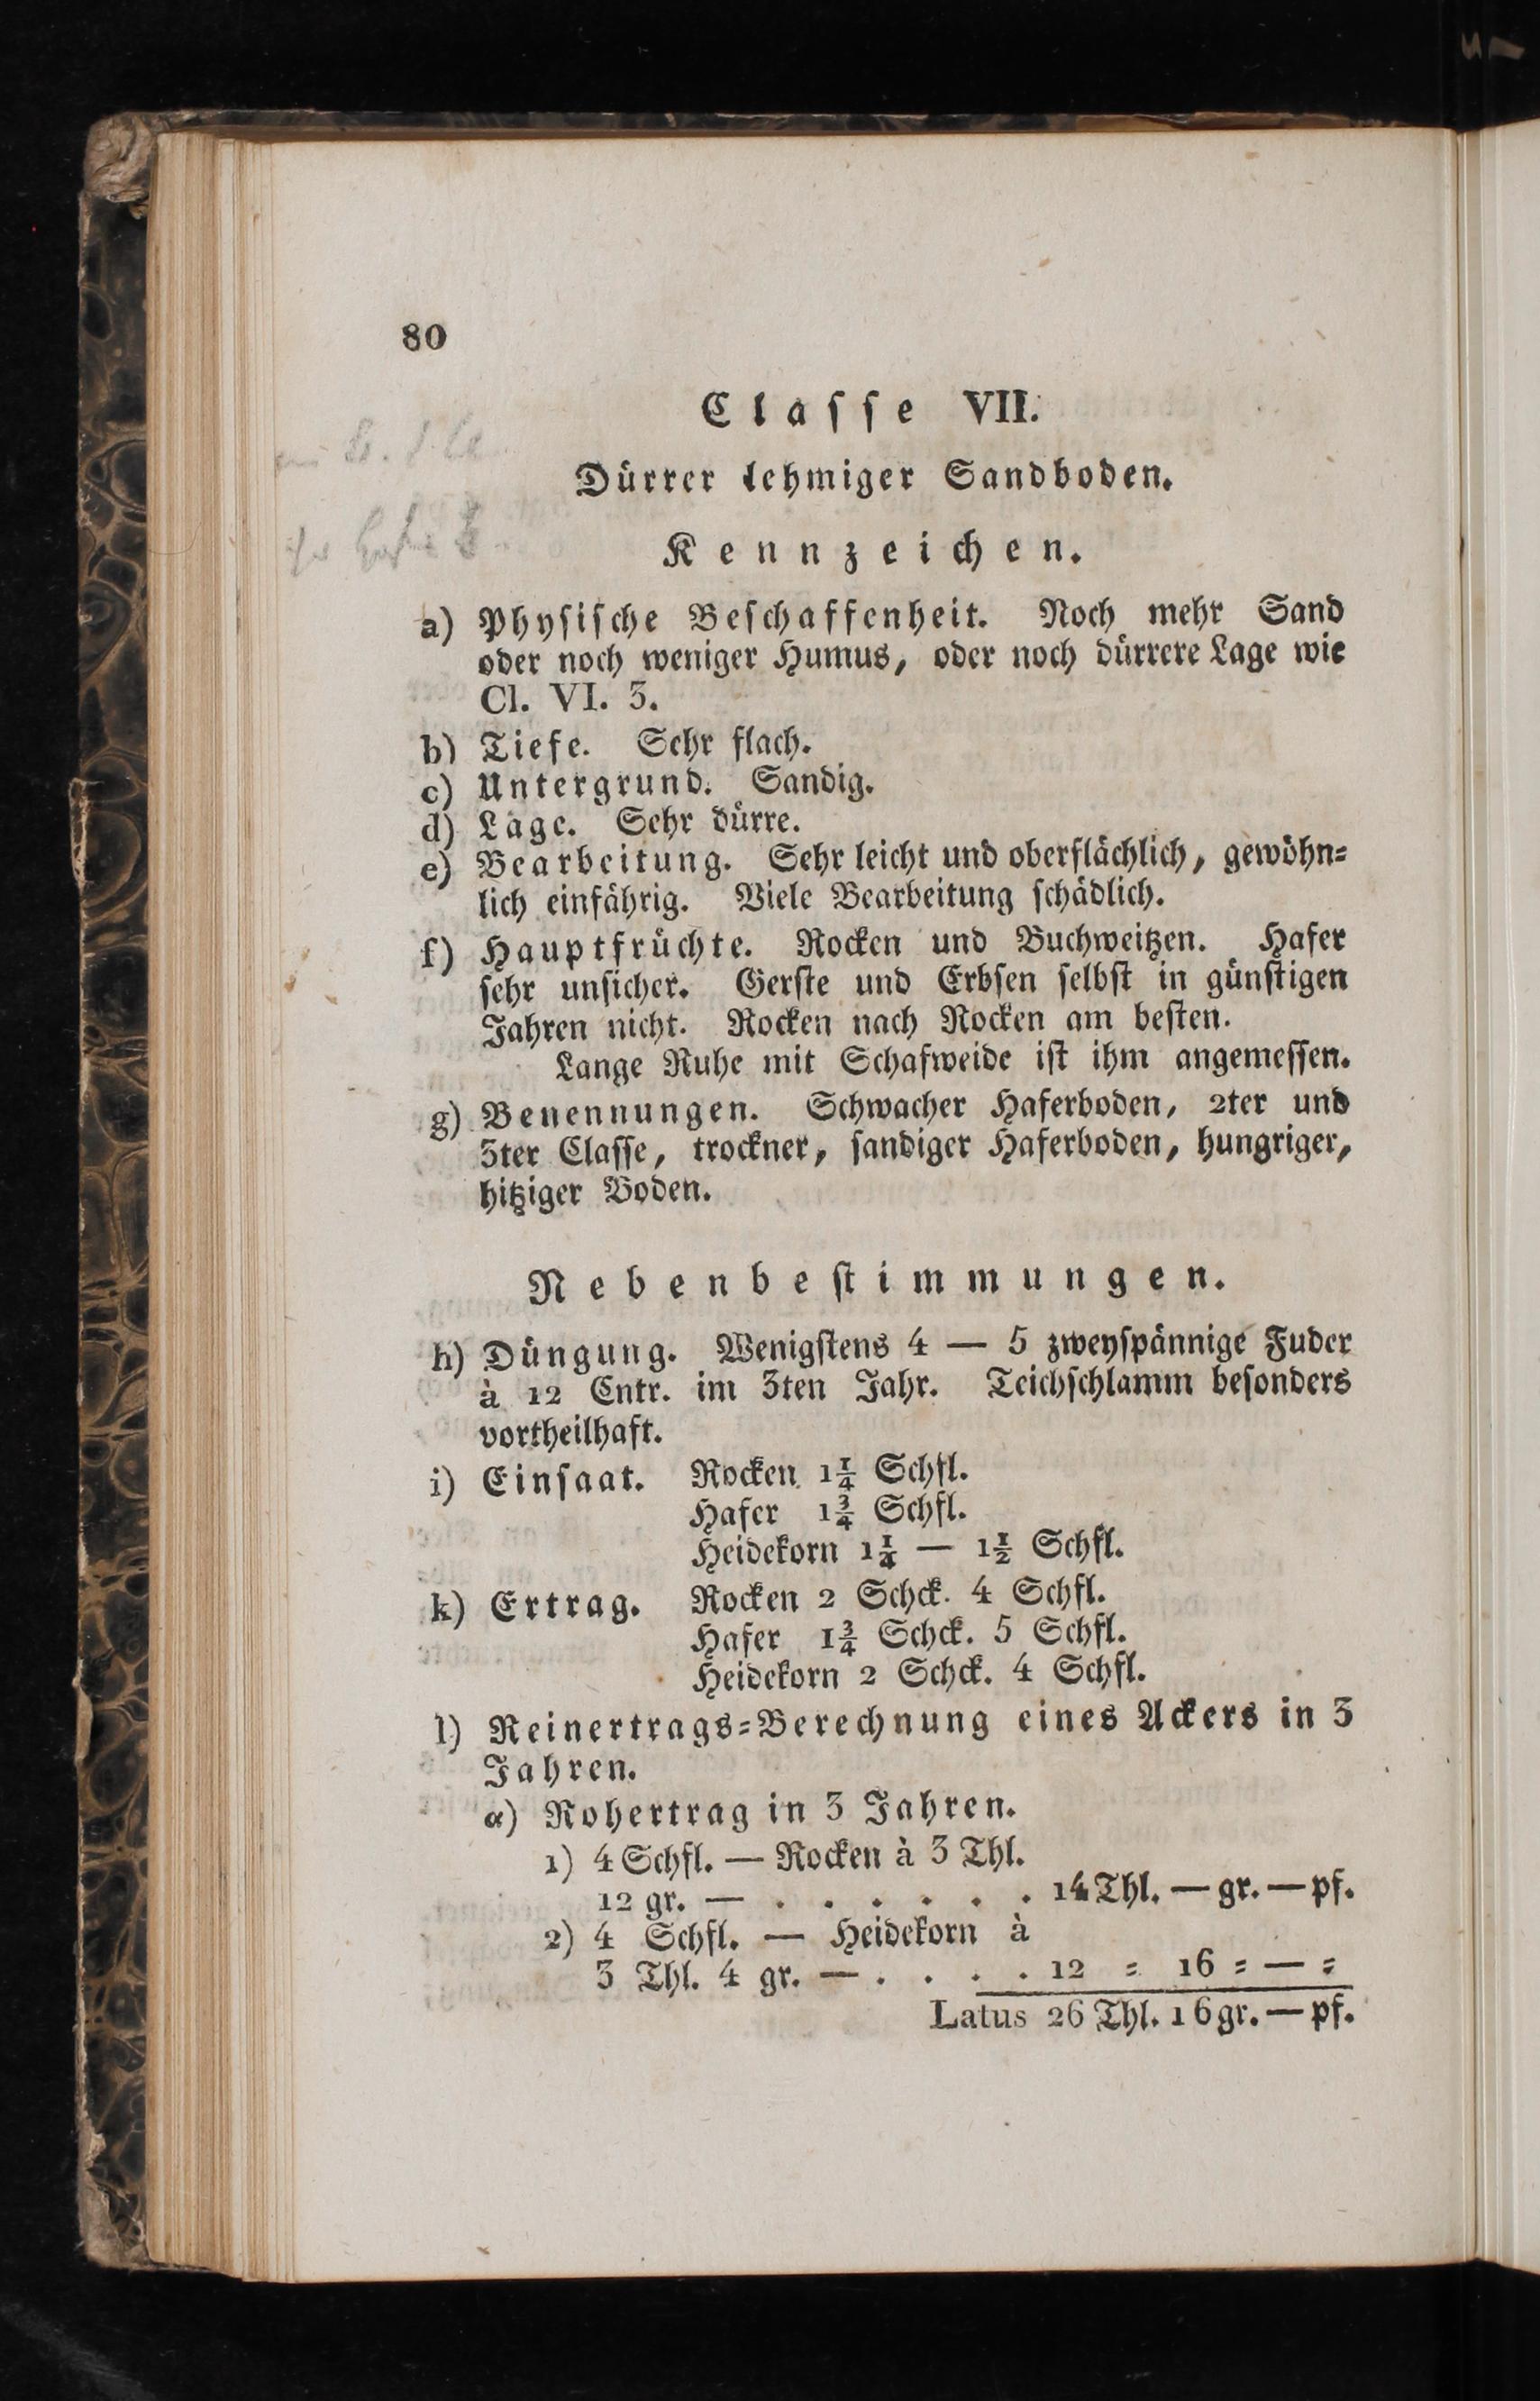 80
Claſſe VII.
Dürrer lehmiger Sandboden.
Kennzeichen.
a) Phyſiſche Beſchaffenheit. Noch mehr Sand
oder noch weniger Humus, oder noch dürrere Lage wie
Cl. VI. 3.
b) Tiefe. Sehr flach.
c) Untergrund. Sandig.
d) Lage. Sehr dürre.
e) Bearbeitung. Sehr leicht und oberflächlich, gewöhn⸗
lich einfährig. Viele Bearbeitung ſchädlich.
f) Hauptfrüchte. Rocken und Buchweitzen. Hafer
ſehr unſicher. Gerſte und Erbſen ſelbſt in günſtigen
Jahren nicht. Rocken nach Rocken am beſten.
Lange Ruhe mit Schafweide iſt ihm angemeſſen.
g) Benennungen. Schwacher Haferboden, 2ter und
3ter Claſſe, trockner, ſandiger Haferboden, hungriger,
hitziger Boden.
Nebenbeſtimmungen.
h) Düngung. Wenigſtens 4 — 5 zweyſpännige Fuder
à 12 Cntr. im 3ten Jahr. Teichſchlamm beſonders
vortheilhaft.
i) Einſaat. Rocken 1¼ Schfl.
Hafer 1¾ Schfl.
Heidekorn 1¼ — 1½ Schfl.
k) Ertrag. Rocken 2 Schck. 4 Schfl.
Hafer 1¾ Schck. 5 Schfl.
Heidekorn 2 Schck. 4 Schfl.
l) Reinertrags⸗Berechnung eines Ackers in 3
Jahren.
α) Rohertrag in 3 Jahren.
1) 4 Schfl. — Rocken à 3 Thl.
12 gr. — . . . . . . 14 Thl. — gr. — pf.
2) 4 Schfl. — Heidekorn à
3 Thl. 4 gr. — . . . . 12 ⸗ 16 ⸗ — ⸗
Latus 26 Thl. 16 gr. — pf.